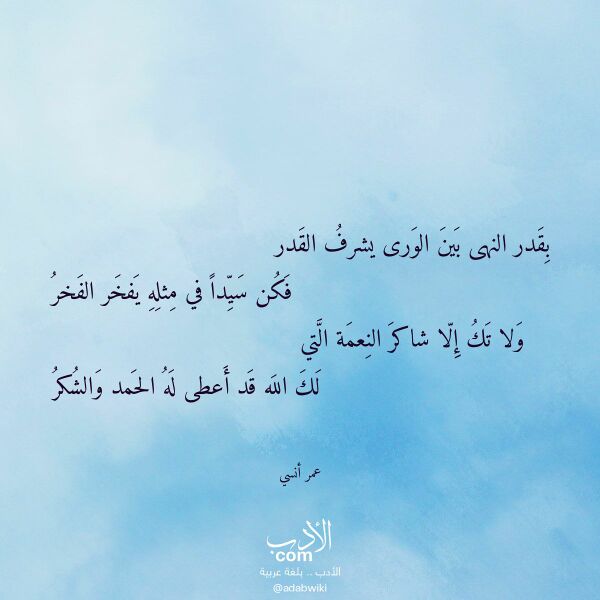 بِقَدر النهى بَينَ الوَرى يشرفُ القَدر
فَكُن سَيِّداً في مِثلِهِ يَفخَر الفَخرُ
وَلا تَكُ إِلّا شاكرَ النِعمَة الَّتي
لَكَ اللَه قَد أَعطى لَهُ الحَمد وَالشُكرُ
عمر أنسي
الأدب
com
الأدب .. بلغة عربية
@adabwiki